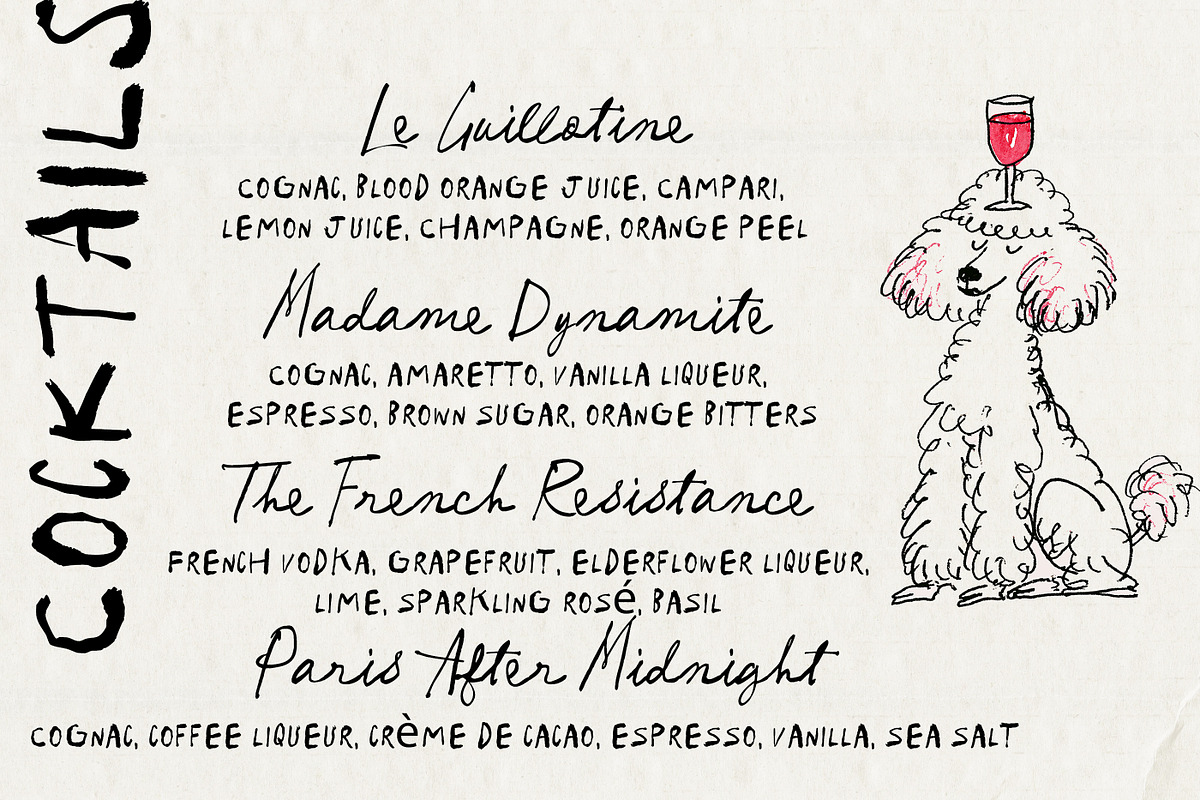 COCKTAILS
Le Guillotine
COGNAC, BLOOD ORANGE JUICE, CAMPARI,
LEMON JUICE, CHAMPAGNE, ORANGE PEEL
Madame Dynamite
COGNAC, AMARETTO, VANILLA LIQUEUR,
ESPRESSO, BROWN SUGAR, ORANGE BITTERS
The French Resistance
FRENCH VODKA, GRAPEFRUIT, ELDERFLOWER LIQUEUR,
LIME, SPARKLING ROSé, BASIL
Paris After Midnight
COGNAC, COFFEE LIQUEUR, CRèME DE CACAO, ESPRESSO, VANILLA, SEA SALT